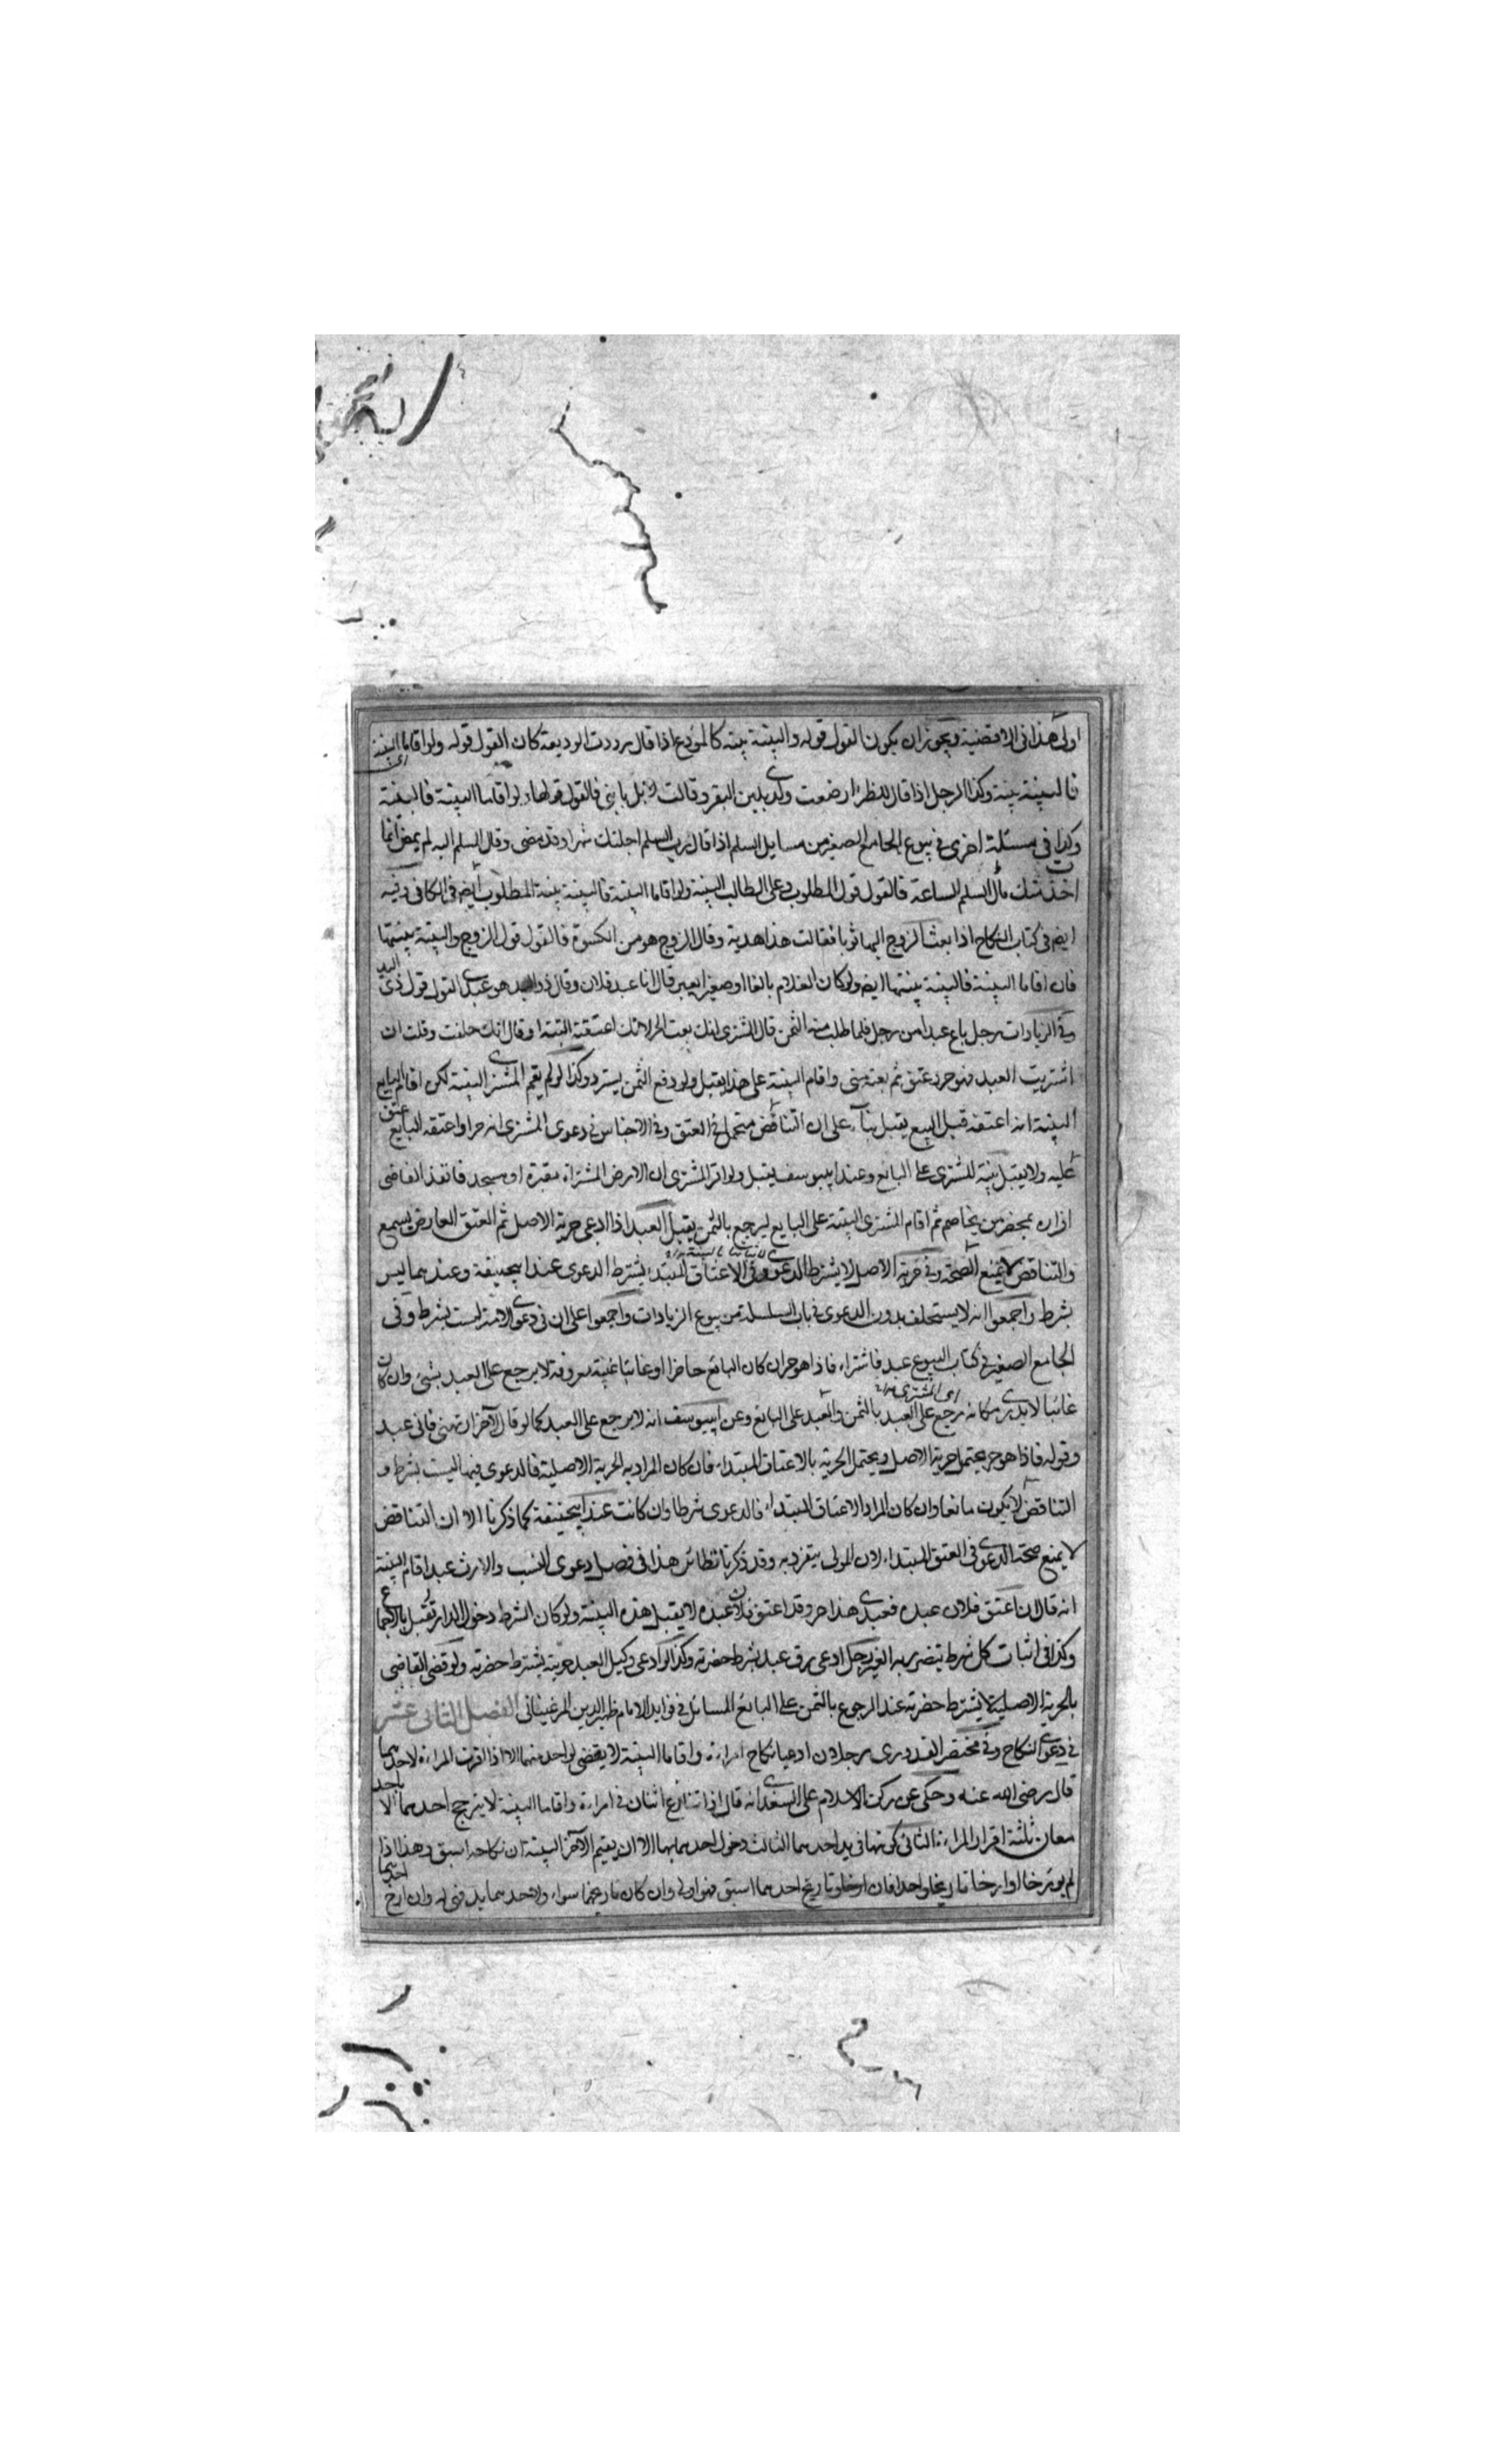 اولى هذا فى الاقضية ويجوز ان يكون القول قوله والبينة بينته كالمودع اذا قال رددت الوديعة كان القول قوله ولو اقاما البينة
فالبينة بينته وكذا الرجل اذا قال للظئر ارضعت ولدى بلبن البقر وقالت لا بل بلبنى فالقول قولها ولو اقاما البينة فالبينة
وكذا فى مسئلة اخرى فى بيوع الجامع الصغير من مسايل السلم اذا قال رب السلم اجلتك شهرا وقد مضى وقال المسلم اليه لم يمض انما
اخذت منك مال السلم الساعة فالقول قول المطلوب وعلى الطالب البينة ولو اقاما البينة فالبينة بينة المطلوب ايضا فى الكافى وفيه
ايضا فى كتاب النكاح اذا بعث الزوج اليها ثوبا فقالت هذا هدية وقال الزوج هو من الكسوة فالقول قول الزوج والبينة بينتها
فان اقاما البينة فالبينة بينتها ايضا ولو كان الغلام بالغا او صغيرا يعبر قال انا عبد فلان وقال ذو اليد هو عبدى القول قول ذى اليد
وفى الزيادات رجل باع عبدا من رجل فلما طلب منه الثمن قال المشترى انك بعت الحر لانك اعتقته البتة او قال انك حلفت وقلت ان
اشتريت العبد فهو حر وعتق ثم بعته منى واقام البينة على هذا يقبل ولو دفع الثمن يسترد وكذا لو لم يقم المشترى البينة لكن اقام البايع
البينة انه اعتقه قبل البيع يقبل بناء على ان التناقض متحمل فى العتق وفى الاجناس فى دعوى المشترى انه حر او اعتقه البايع عتق
عليه ولا يقبل بينة المشترى على البائع وعند ابييوسف يقبل ولو اقر المشترى ان الارض المشتراة مقبرة او مسجد فانفذ القاضى
اقراره بمحضر من يخاصم ثم اقام المشترى البينة على البايع ليرجع بالثمن يقبل العبد اذا ادعى حرية الاصل ثم العتق العارض يسمع
والتناقض لا يمنع الصحة وفى حرية الاصل لا يشترط الدعوى وفى الاعتاق المبتدا يشترط الدعوى عند ابيحنيفة وعندهما ليس
بشرط واجمعوا انه لا يستحلف بدون الدعوى فى باب السلسلة من بيوع الزيادات واجمعوا على ان فى دعوى الامة ليست بشرط وفى
الجامع الصغير فى كتاب البيوع عبد فاشتراه فاذا هو حر ان كان البائع حاضرا او غائبا غيبة معروفة لا يرجع على العبد بشىء وان كان
غائبا لا يدرى مكانه يرجع على العبد اى المشترى بالثمن والعبد على البائع وعن ابييوسف انه لا يرجع على العبد كما لو قال لآخر ارتهنى فانى عبد
وقوله فاذا هو حر يحتمل حرية الاصل ويحتمل الحرية بالاعتاق المبتداء فان كان المراد به الحرية الاصلية فالدعوى فيها ليست بشرط و
التناقض لا يكون مانعا وان كان المراد الاعتاق المبتداء فالدعوى شرطا وان كانت عند ابيحنيفة كما ذكرنا الا ان التناقض
لا يمنع صحة الدعوى فى العتق المبتداء لان المولى يتفرد به وقد ذكرنا نظائر هذا فى فصل دعوى النسب والارث عبد اقام البينة
انه قال ان اعتق فلان عبده فعبدى هذا حر وقد اعتق فلان عبده لا يقبل هذه البينة ولو كان الشرط دخول الدار تقبل بالاجماع
وكذا فى اثبات كل شرط يتضرر به الغير رجل ادعى رق عبد بشرط حضرته وكذا لو ادعى وكيل العبد حريته يشترط حضرته ولو قضى القاضى
بالحرية الاصلية لا يشترط حضرته عند الرجوع بالثمن على البائع المسائل فى فوايد الامام ظهير الدين المرغينانى الفصل الثانى عشر
فى دعوى النكاح وفى مختصر القدورى رجلان ادعيا نكاح امراءة واقاما البينة لا يقضى لواحد منهما الا اذا اقرت المراءة لاحدهما
قال رضى الله عنه وحكى عن ركن الاسلام على السغدى انه قال اذا تنازع اثنان فى امراءة واقاما البينة لا يترجح احدهما الا باحد
معان ثلثة اقرار المراءة الثانى كونها فى يد احدهما الثالث دخول احدهما بها الا ان يقيم الآخر البينة ان نكاحه اسبق وهذا اذا
لم يورخا او ارخا تاريخا واحدا فان ارخا وتاريخ احدهما اسبق فهو اولى وان كان تاريخهما سواء ولاحدهما يد فهى له وان ارخ احدهما